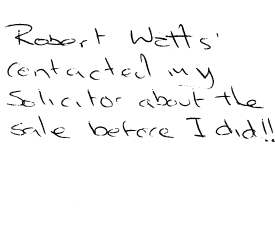 Robert Watts'
contacted my
Solicitor about the
sale before I did!!